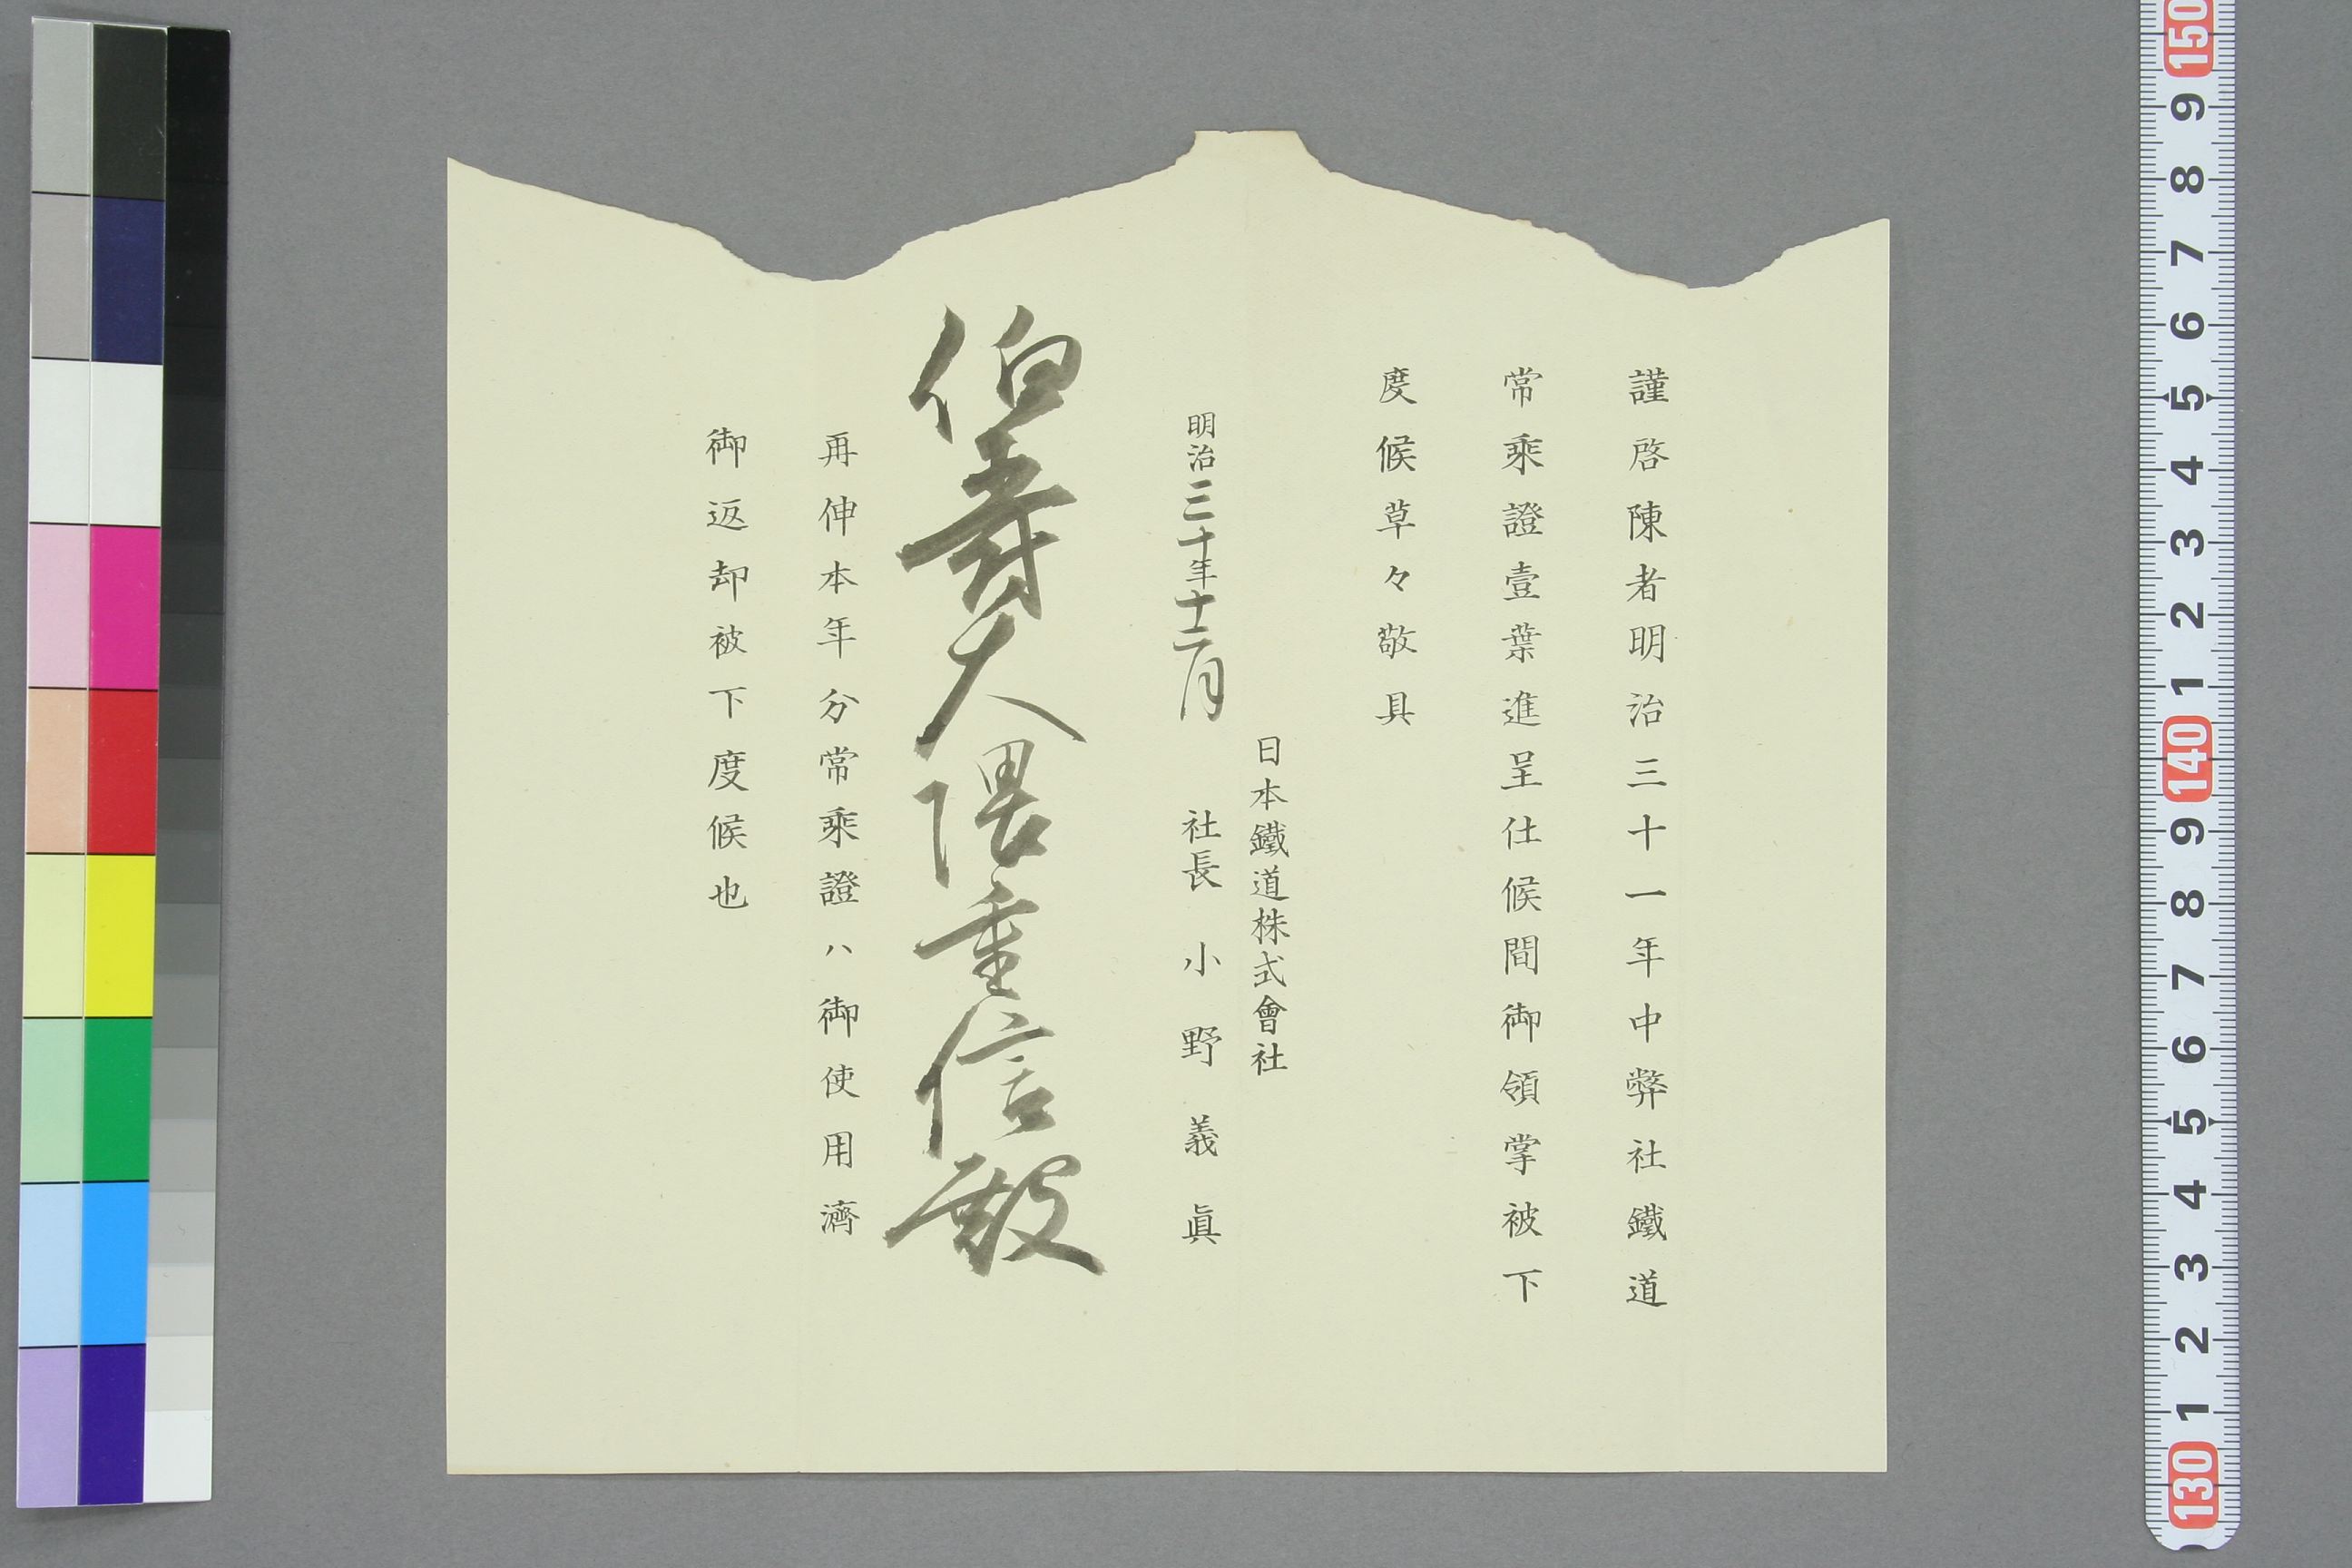 謹啓陳者明治三十一年中弊社鐵道
常乘證壹葉進呈仕候間御領掌被下
度候草々敬具
日本鐵道株式會社
明治三十年十二月
社長 小野義眞
伯爵大隈重信殿
再伸本年分常乘證ハ御使用濟
御返却被下度候也
150
9
8
7
6
5
4
3
2
1
140
9
8
7
6
5
4
3
2
1
130